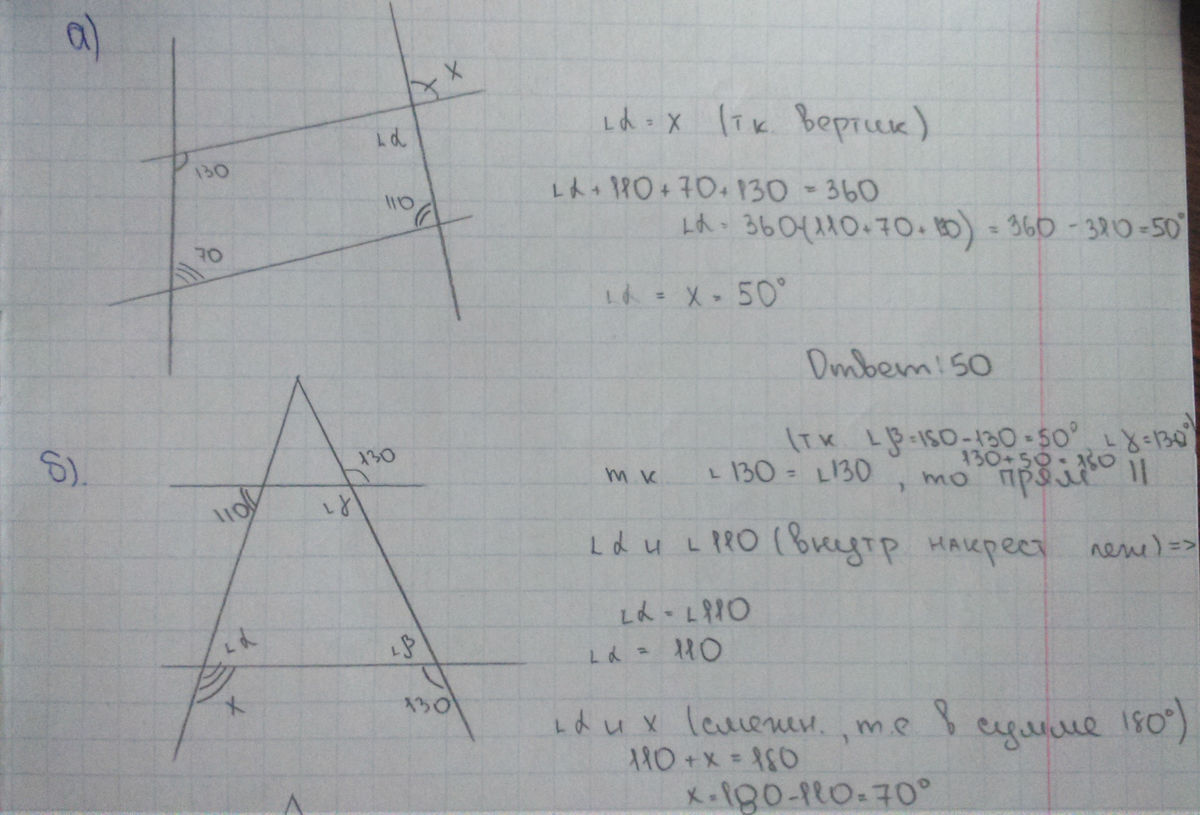 а)
x
∠α
130
110
70
∠α = x (тк вертик)
∠α + 110 + 70 + 130 = 360
∠α = 360-(110+70+130) = 360 - 310 = 50°
∠α = x = 50°
Ответ: 50
б).
130
110
∠γ
∠α
∠β
x
130
(тк ∠β=180-130=50°, ∠γ=130°)
130+50=180
тк ∠130 = ∠130, то прям ||
∠α и ∠110 (внутр накрест леж) =>
∠α = ∠110
∠α = 110
∠α и x (смежн., т.е в сумме 180°)
110 + x = 180
x = 180-110=70°